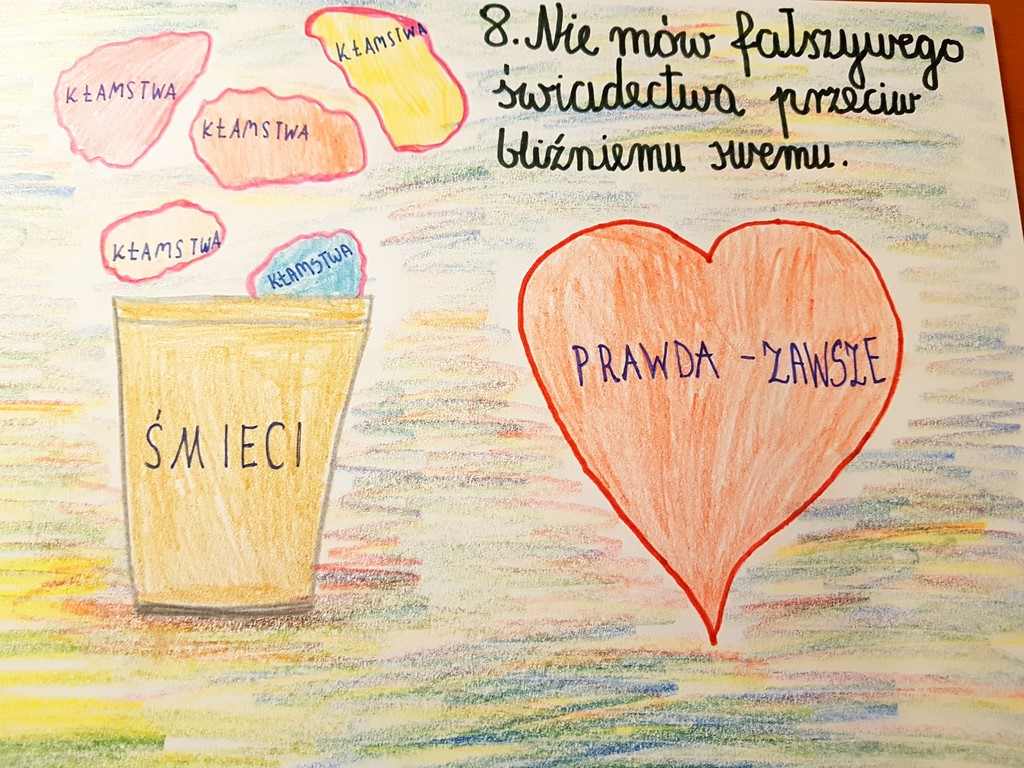 8. Nie mów fałszywego
świadectwa przeciw
bliźniemu swemu.
KŁAMSTWA
KŁAMSTWA
KŁAMSTWA
KŁAMSTWA
KŁAMSTWA
ŚMIECI
PRAWDA - ZAWSZE